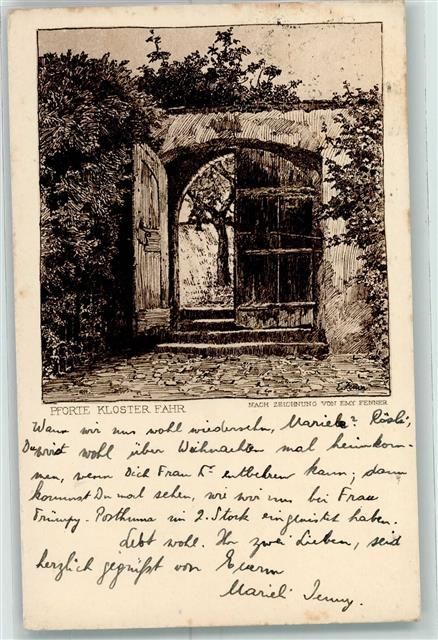 E. Fenner
PFORTE KLOSTER FAHR
NACH ZEICHNUNG VON EMY FENNER
Wann wir uns wohl wiedersehn, Mariele? Rösli,
Du wirst wohl über Weihnachten mal heimkom-
men, wenn Dich Frau Dr. entbehren kann; dann
kommst Du mal sehen, wie wir uns bei Frau
Trümpy-Posthuma im 2. Stock eingenistet haben.
Lebt wohl. Ihr zwei Lieben, seid
herzlich gegrüsst von Euerm
Marieli Jenny.